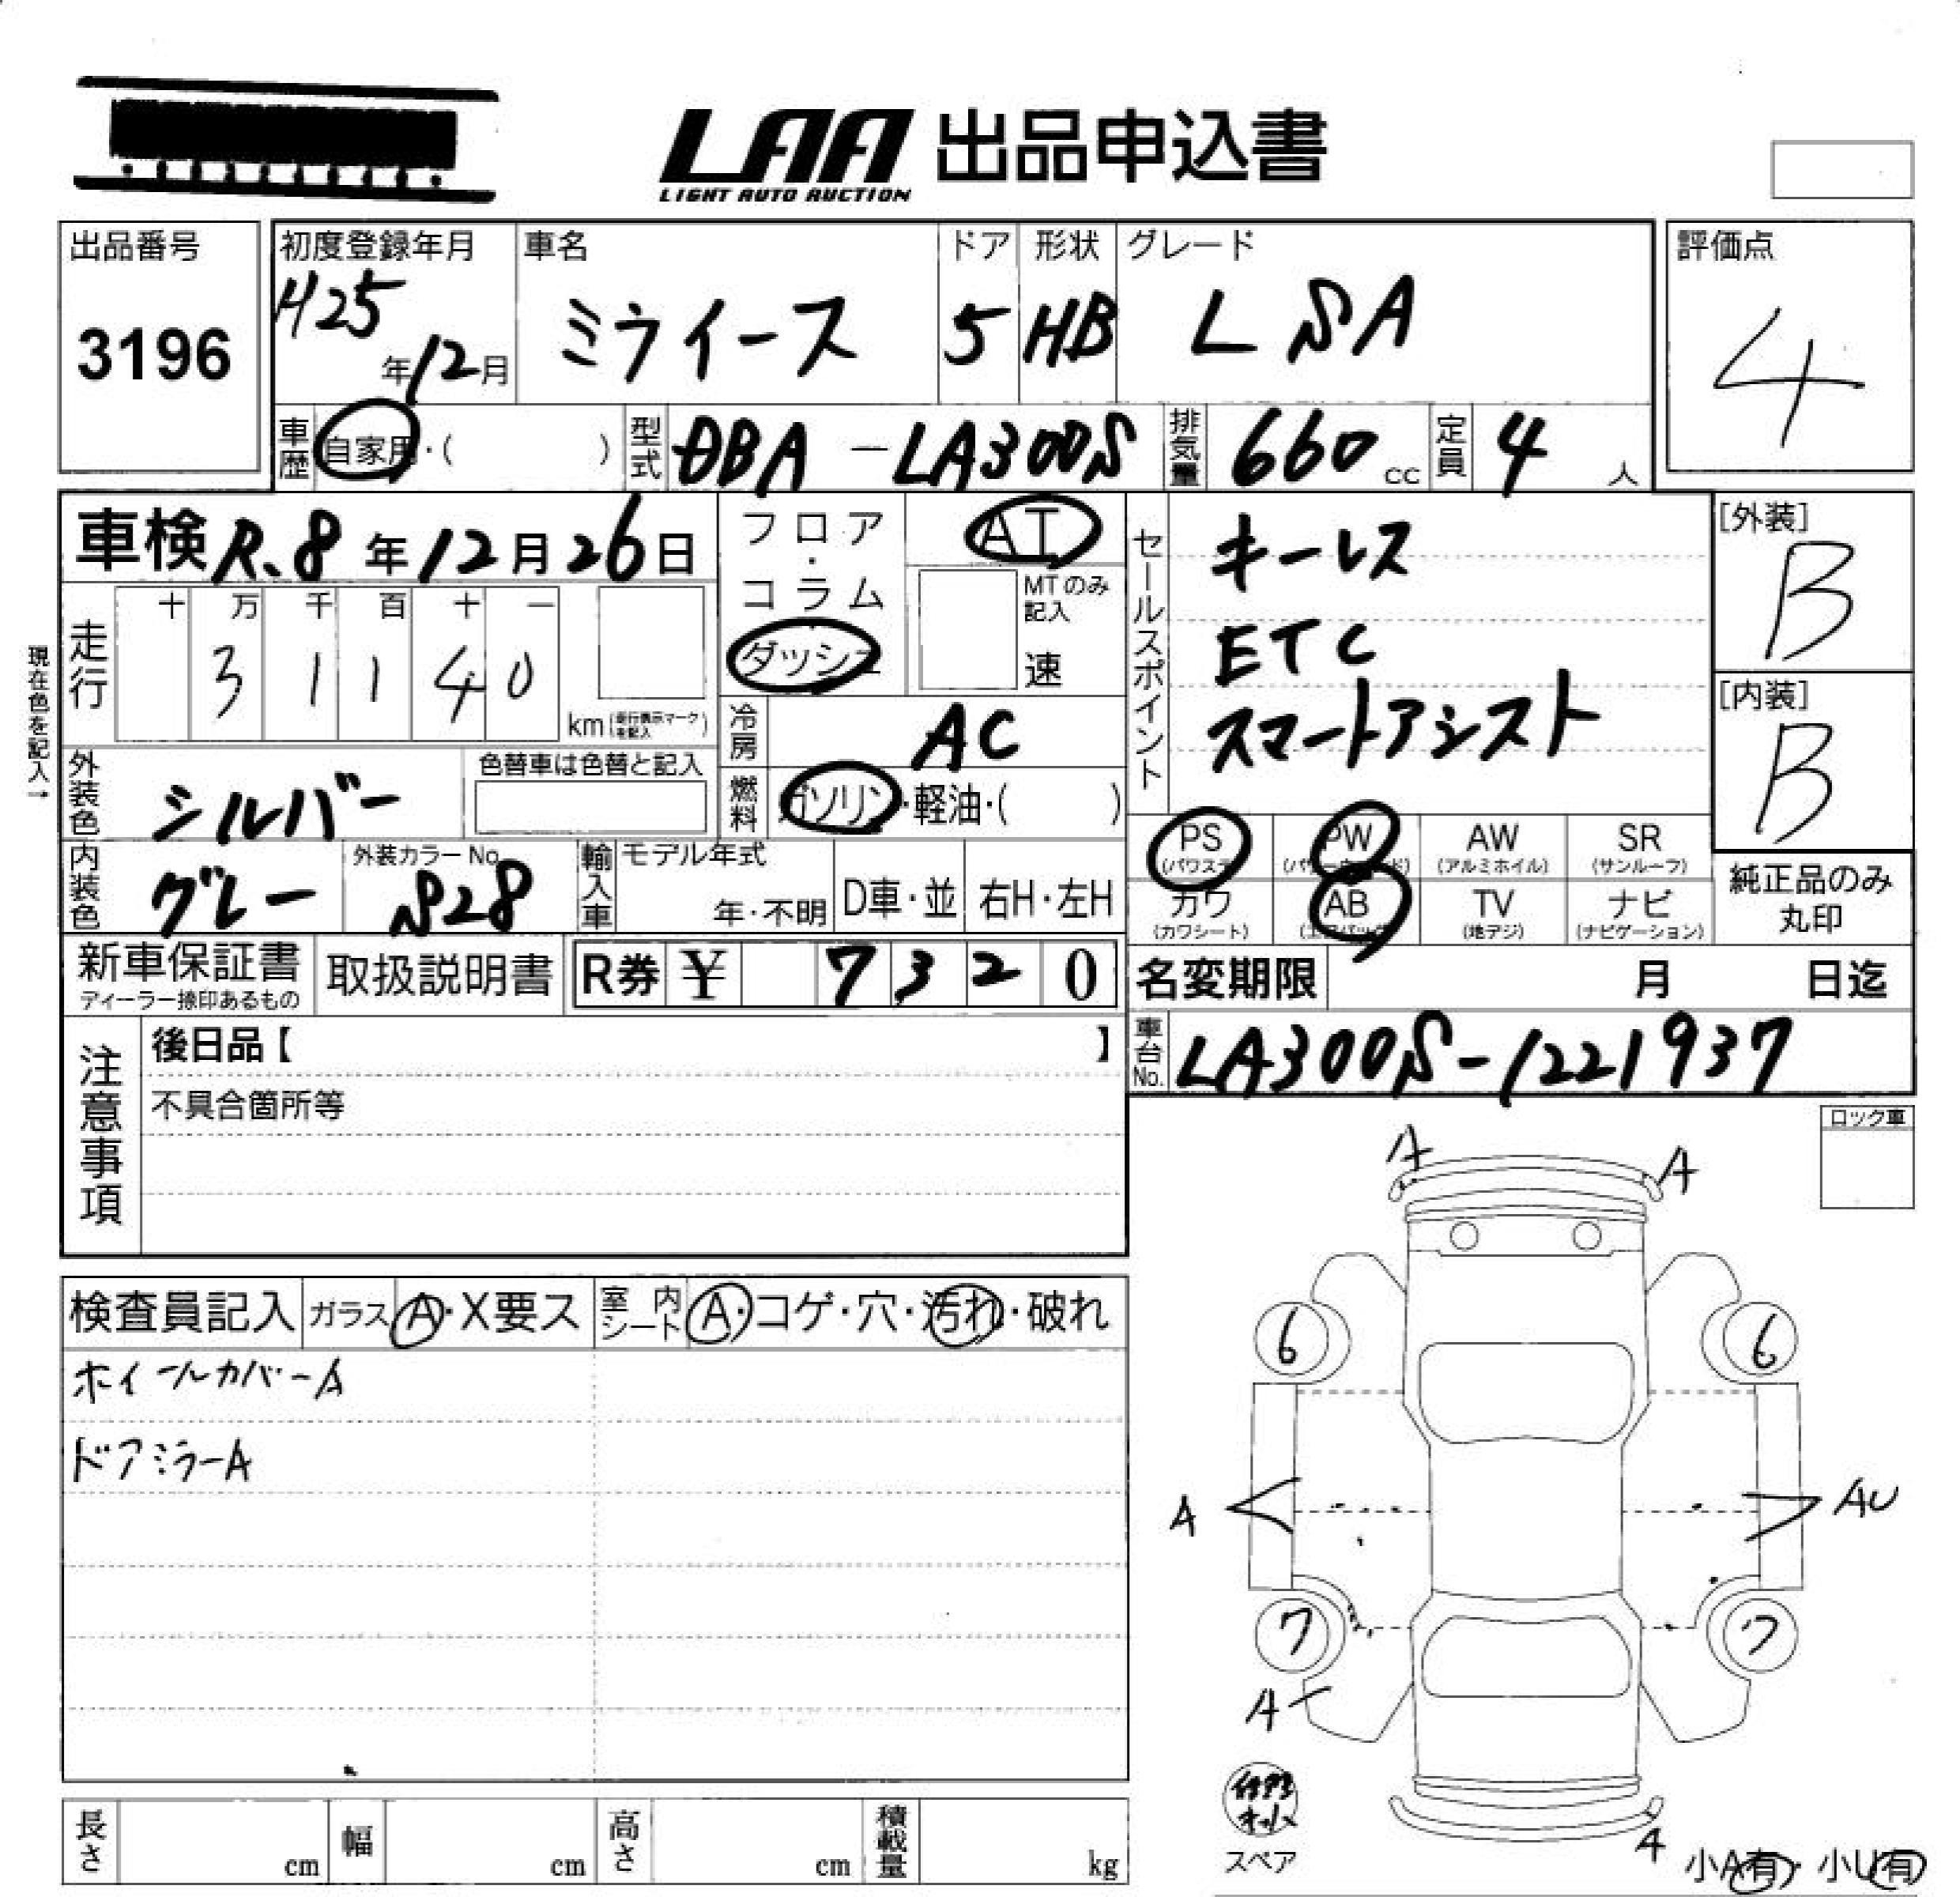 LAA 出品申込書
LIGHT AUTO AUCTION
出品番号
3196
初度登録年月
H25年12月
車名
ミライース
ドア
5
形状
HB
グレード
L SA
評価点
4
車歴 自家用・( )
型式 DBA-LA300S
排気量 660cc
定員 4人
車検 R.8年12月26日
現在色を記入→
走行
十 万 千 百 十 一
3 1 1 4 0
km(走行表示マークを記入)
フロア・コラム
ダッシュ
AT
MTのみ記入
速
冷房 AC
燃料 ガソリン・軽油・( )
外装色 シルバー
色替車は色替と記入
内装色 グレー
外装カラーNo. S28
輸入車
モデル年式
年・不明
D車・並
右H・左H
セールスポイント
キーレス
ETC
スマートアシスト
[外装]
B
[内装]
B
PS (パワステ)
PW (パワーウィンド)
AW (アルミホイル)
SR (サンルーフ)
カワ (カワシート)
AB (エアバッグ)
TV (地デジ)
ナビ (ナビゲーション)
純正品のみ丸印
新車保証書
ディーラー捺印あるもの
取扱説明書
R券 ¥ 7320
名変期限 月 日迄
車台No. LA300S-1221937
注意事項
後日品【 】
不具合箇所等
ロック車
検査員記入
ガラス A・X要ス
室内シート A・コゲ・穴・汚れ・破れ
ホイールカバーA
ドアミラーA
A
A
6
6
A
AU
7
7
A
A
修理キット
スペア
小A有・小U有
長さ cm
幅 cm
高さ cm
積載量 kg